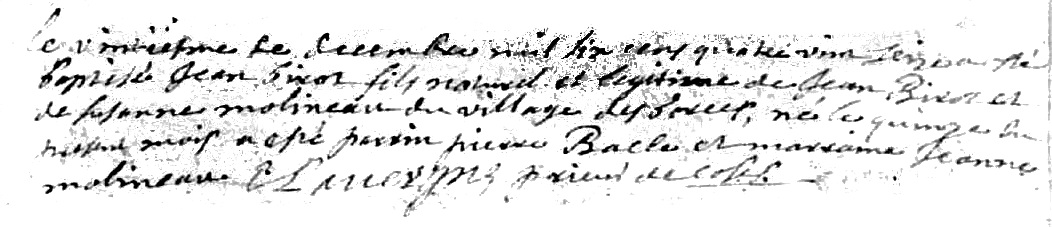 le vintiesme de decembre mil six cens quatre vin seize a esté
baptisé Jean Birot fils naturel et legitime de Jean Birot et
de susanne molineau du village des, né le quinze du
mois a esté parrin pierre Bacle et marraine Jeanne
molineau prieur de